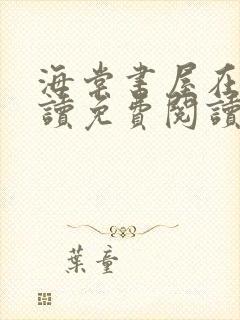 海棠書屋在
讀免費閱讀
葉童